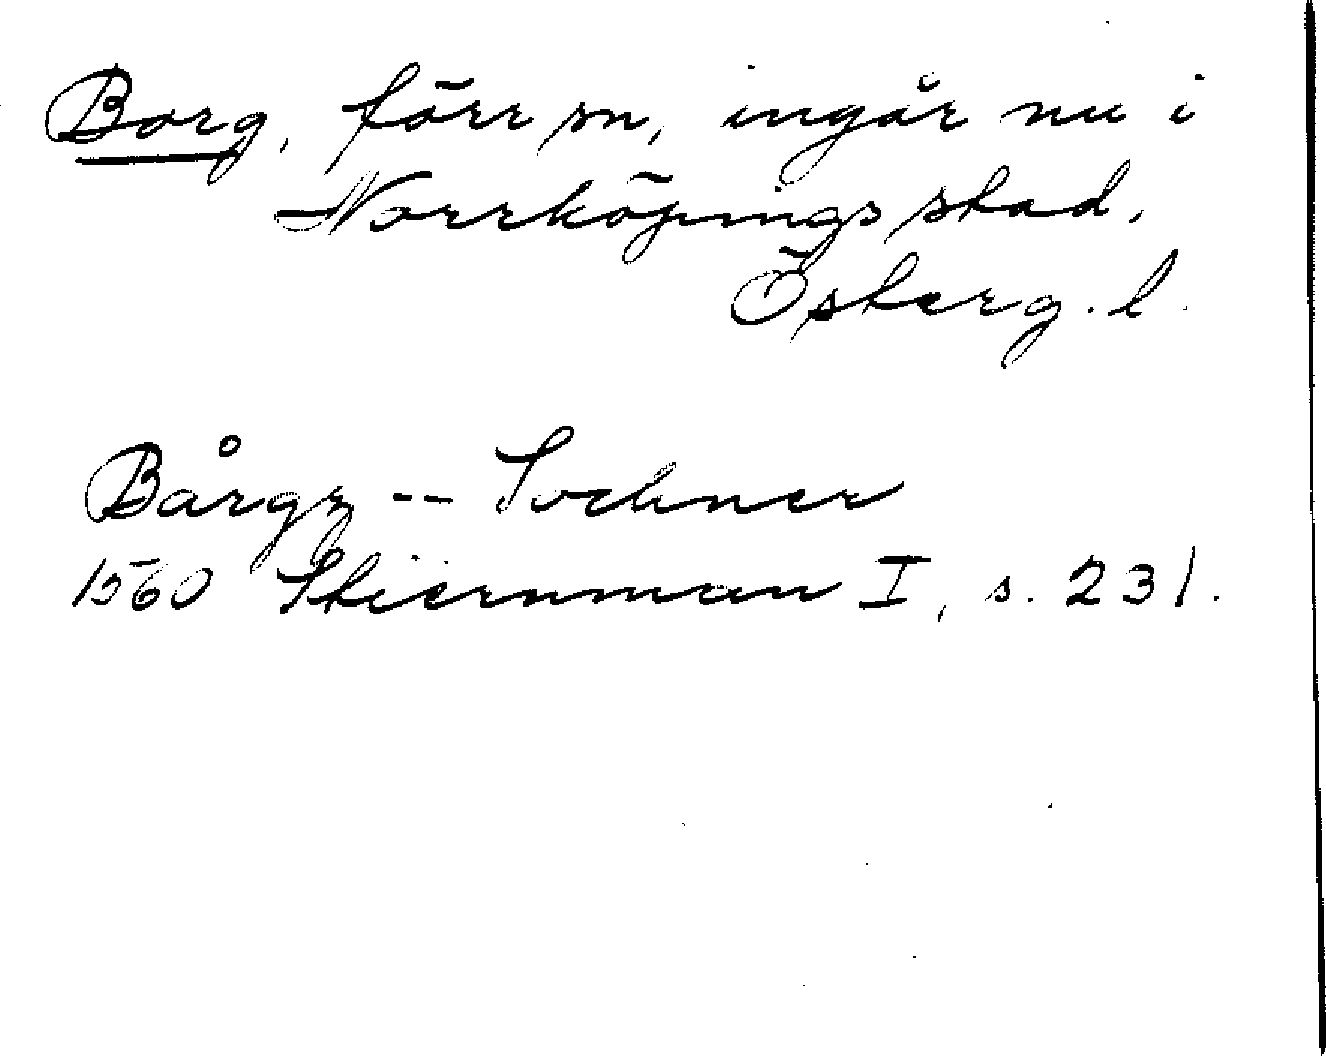 Borg, förr sn, ingår nu i
Norrköpings stad,
Österg. l.
Bårgz -- Sochner
1560 Stiernman I, s. 231.